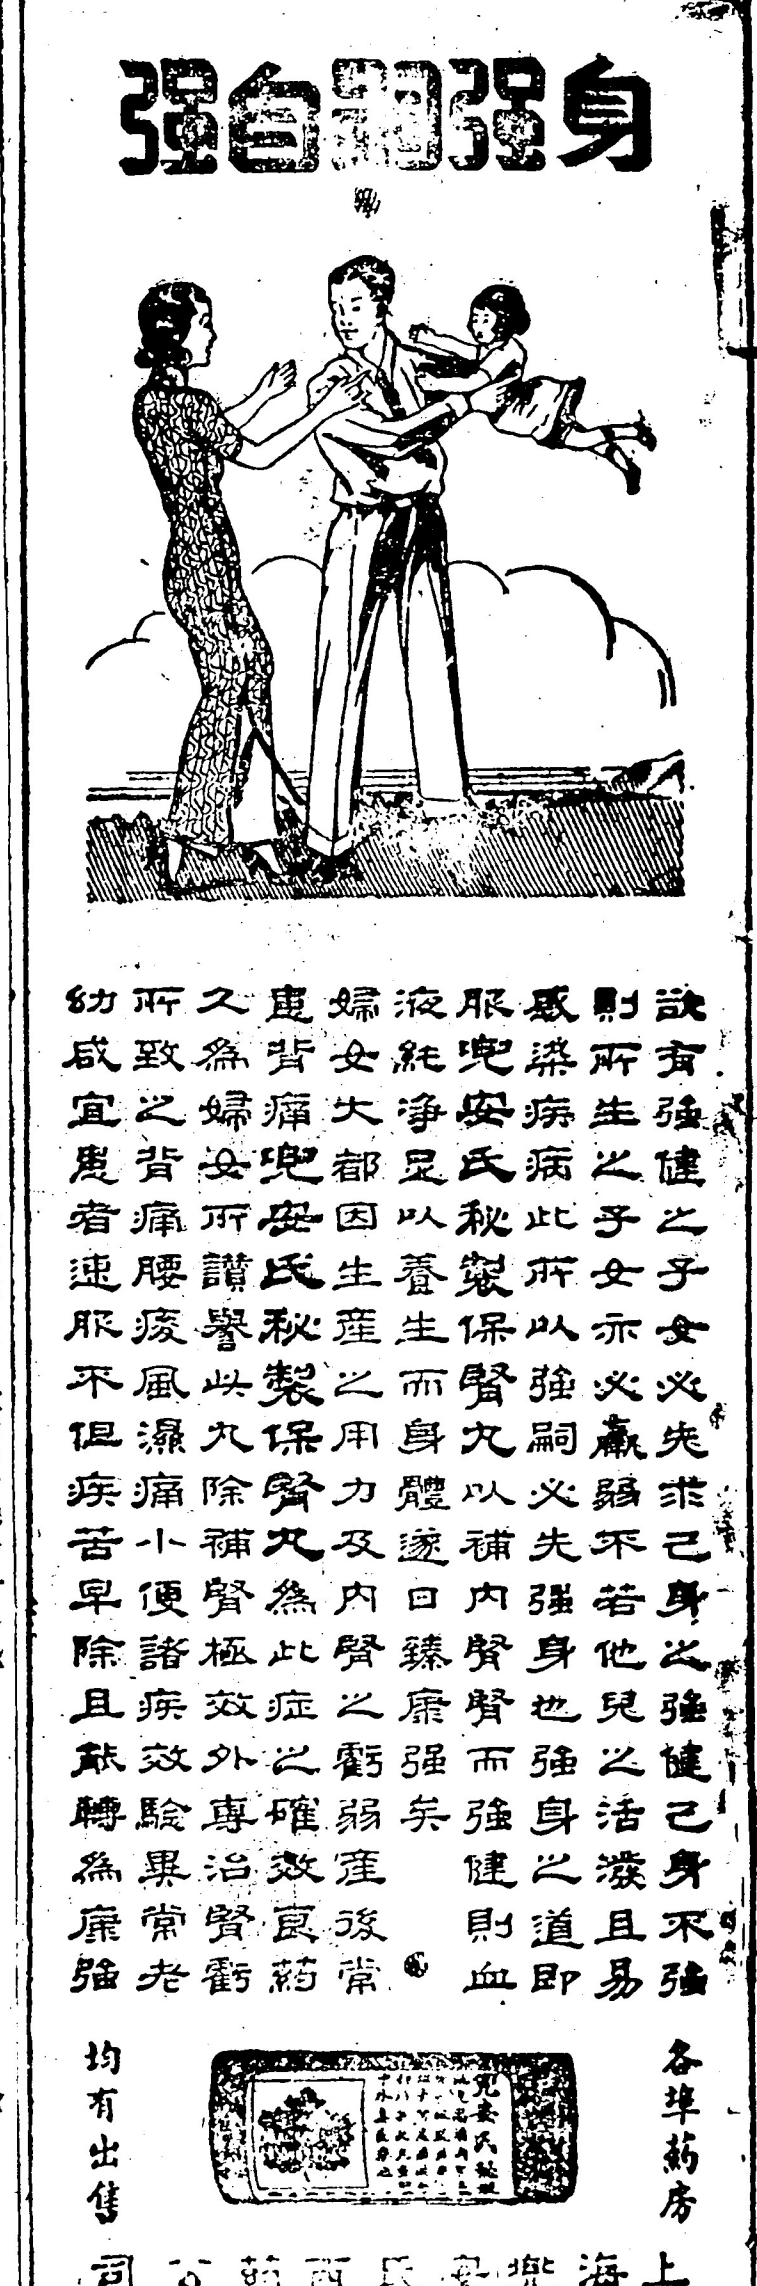 身强嗣自强
欲有强健之子女必先求己身之强健己身不强
則所生之子女亦必羸弱不若他兒之活潑且易
感染疾病此所以强嗣必先强身也强身之道即
服兜安氏秘製保腎丸以補內腎腎而强健則血
液純净足以養生而身體遂日臻康强矣
婦女大都因生産之用力及內腎之虧弱産後常
患背痛兜安氏秘製保腎丸為此症之確效良葯
久為婦女所讚譽此丸除補腎極效外專治腎虧
所致之背痛腰痠風濕痛小便諸疾效驗異常老
幼咸宜患者速服不但疾苦早除且能轉為康强
各埠葯房
均有出售
兜安氏秘製
上海兜安氏西葯公司